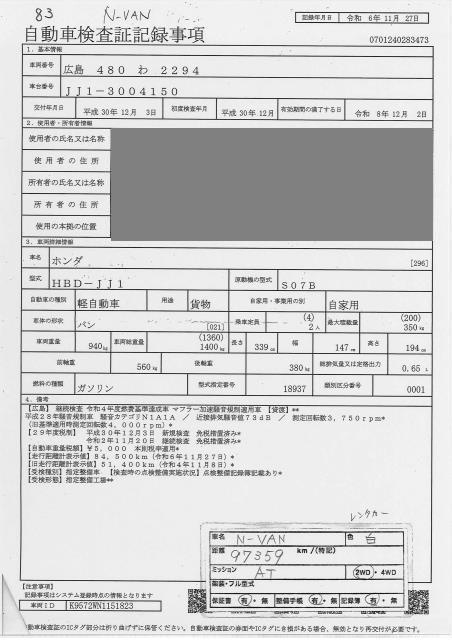 83 N-VAN
記録年月日 令和 6年11月 27日
自動車検査証記録事項
0701240283473
1. 基本情報
車両番号 広島 480 わ 2294
車台番号 JJ1-3004150
交付年月日 平成 30年 12月 3日 初度検査年月 平成 30年 12月 有効期間の満了する日 令和 8年 12月 2日
2. 使用者・所有者情報
使用者の氏名又は名称
使用者の住所
所有者の氏名又は名称
所有者の住所
使用の本拠の位置
3. 車両詳細情報
車名 ホンダ [296]
型式 HBD-JJ1 原動機の型式 S07B
自動車の種別 軽自動車 用途 貨物 自家用・事業用の別 自家用
車体の形状 バン [021] 乗車定員 (4) 2人 最大積載量 (200) 350kg
車両重量 940kg 車両総重量 (1360) 1400kg 長さ 339cm 幅 147cm 高さ 194cm
前軸重 560kg 後軸重 380kg 総排気量又は定格出力 0.65 L
燃料の種類 ガソリン 型式指定番号 18937 類別区分番号 0001
4. 備考
【広島】 継続検査 令和4年度燃費基準達成車 マフラー加速騒音規制適用車 【貸渡】**
平成28年騒音規制車 騒音カテゴリN1A1A / 近接排気騒音値73dB / 測定回転数3,750rpm*
(旧基準適用時測定回転数4,000rpm)*
【29年度税制】 平成30年12月3日 新規検査 免税措置済み*
令和2年11月20日 継続検査 免税措置済み*
【自動車重量税額】¥5,000 本則税率適用*
【走行距離計表示値】84,500km(令和6年11月27日)*
【旧走行距離計表示値】51,400km(令和4年11月8日)*
【受検種別】指定整備車 【検査時の点検整備実施状況】点検整備記録簿記載あり*
【受検形態】指定整備工場**
レンタカー
車名 N-VAN 色 白
距離 97359 km/(特記)
ミッション AT 2WD・4WD
架装・フル型式
保証書 有・無 整備手帳 有・無 記録簿 有・無
【注意事項】
記録事項はシステム登録時点の情報となります
車両ID K9572WN1151823
自動車検査証のICタグ部分は折り曲げずに保管ください。自動車検査証の券面やICタグにき損がある場合、無効となり再交付が必要です。